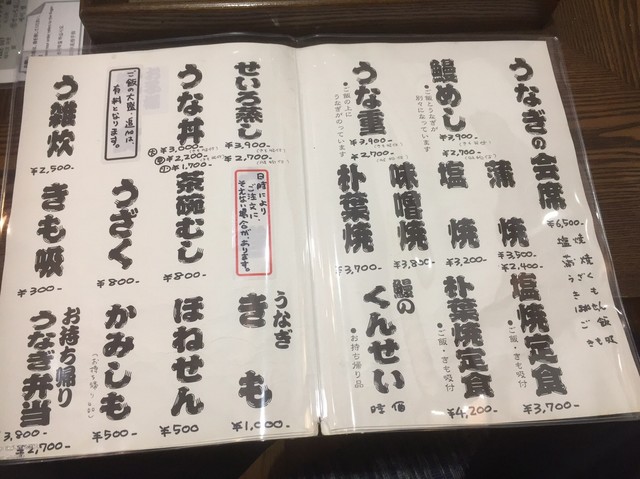 うなぎの会席
¥6,500-
鰻めし
・ご飯とうなぎが
別々になっています
¥3,900-
¥2,700-
うな重
・ご飯の上に
うなぎがのっています
¥3,900-
¥2,700-
蒲焼
¥3,500-
¥2,400-
塩焼
¥3,200-
味噌焼
¥3,800-
朴葉焼
¥3,700-
塩焼定食
・ご飯・きも吸付
¥3,700-
朴葉焼定食
・ご飯・きも吸付
¥4,200-
鰻のくんせい
・お持ち帰り品
時価
せいろ蒸し
¥3,900-
¥2,700-
うな丼
¥3,000-
¥2,200-
¥1,700-
ご飯の大盛、追加は、
有料となります。
う雑炊
¥2,500-
日時により
ご注文に、
そえない場合があります。
茶碗むし
¥800-
うざく
¥800-
きも吸
¥300-
うなぎ
きも
¥1,000-
ほねせん
¥500
かみしも
¥500-
お持ち帰り
うなぎ弁当
¥3,800-
¥2,700-